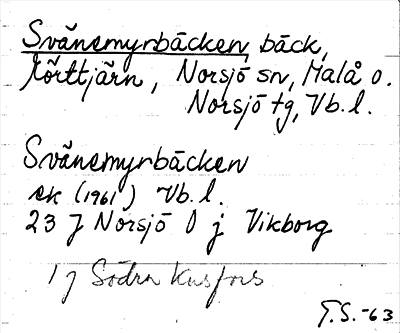 Svänsmyrbäcken, bäck,
Körttjärn, Norsjö sn, Malå o.
Norsjö tg, Vb.l.
Svänsmyrbäcken
ek (1961) Vb.l.
23 J Norsjö 0 j Vikborg
1 j Södra Kusfors
T.S.-63